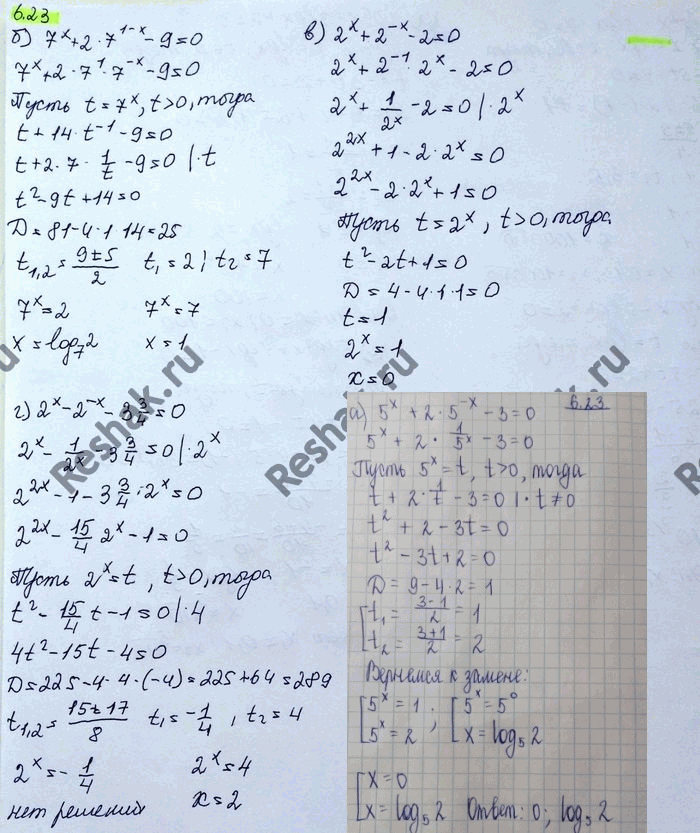 6.23
б) 7^x + 2 · 7^{1-x} - 9 = 0
7^x + 2 · 7^1 · 7^{-x} - 9 = 0
Пусть t = 7^x, t > 0, тогда
t + 14 · t^{-1} - 9 = 0
t + 2 · 7 · 1/t - 9 = 0 | · t
t^2 - 9t + 14 = 0
D = 81 - 4 · 1 · 14 = 25
t_{1,2} = (9 ± 5)/2   t_1 = 2; t_2 = 7
7^x = 2   7^x = 7
x = log_7 2   x = 1
в) 2^x + 2^{-x} - 2 = 0
2^x + 2^{-1} · 2^x - 2 = 0
2^x + 1/2^x - 2 = 0 | · 2^x
2^{2x} + 1 - 2 · 2^x = 0
2^{2x} - 2 · 2^x + 1 = 0
Пусть t = 2^x, t > 0, тогда
t^2 - 2t + 1 = 0
D = 4 - 4 · 1 · 1 = 0
t = 1
2^x = 1
x = 0
г) 2^x - 2^{-x} - 3 3/4 = 0
2^x - 1/2^x - 3 3/4 = 0 | · 2^x
2^{2x} - 1 - 3 3/4 · 2^x = 0
2^{2x} - 15/4 2^x - 1 = 0
Пусть 2^x = t, t > 0, тогда
t^2 - 15/4 t - 1 = 0 | · 4
4t^2 - 15t - 4 = 0
D = 225 - 4 · 4 · (-4) = 225 + 64 = 289
t_{1,2} = (15 ± 17)/8   t_1 = -1/4, t_2 = 4
2^x = -1/4   2^x = 4
нет решений   x = 2
6.23
а) 5^x + 2 · 5^{-x} - 3 = 0
5^x + 2 · 1/5^x - 3 = 0
Пусть 5^x = t, t > 0, тогда
t + 2 · 1/t - 3 = 0 | · t ≠ 0
t^2 + 2 - 3t = 0
t^2 - 3t + 2 = 0
D = 9 - 4 · 2 = 1
[ t_1 = (3-1)/2 = 1
t_2 = (3+1)/2 = 2
Вернемся к замене:
[ 5^x = 1 ; [ 5^x = 5^0
5^x = 2   x = log_5 2
[ x = 0
x = log_5 2   Ответ: 0; log_5 2
Reshak.ru
Reshak.ru
Reshak.ru
Reshak.ru